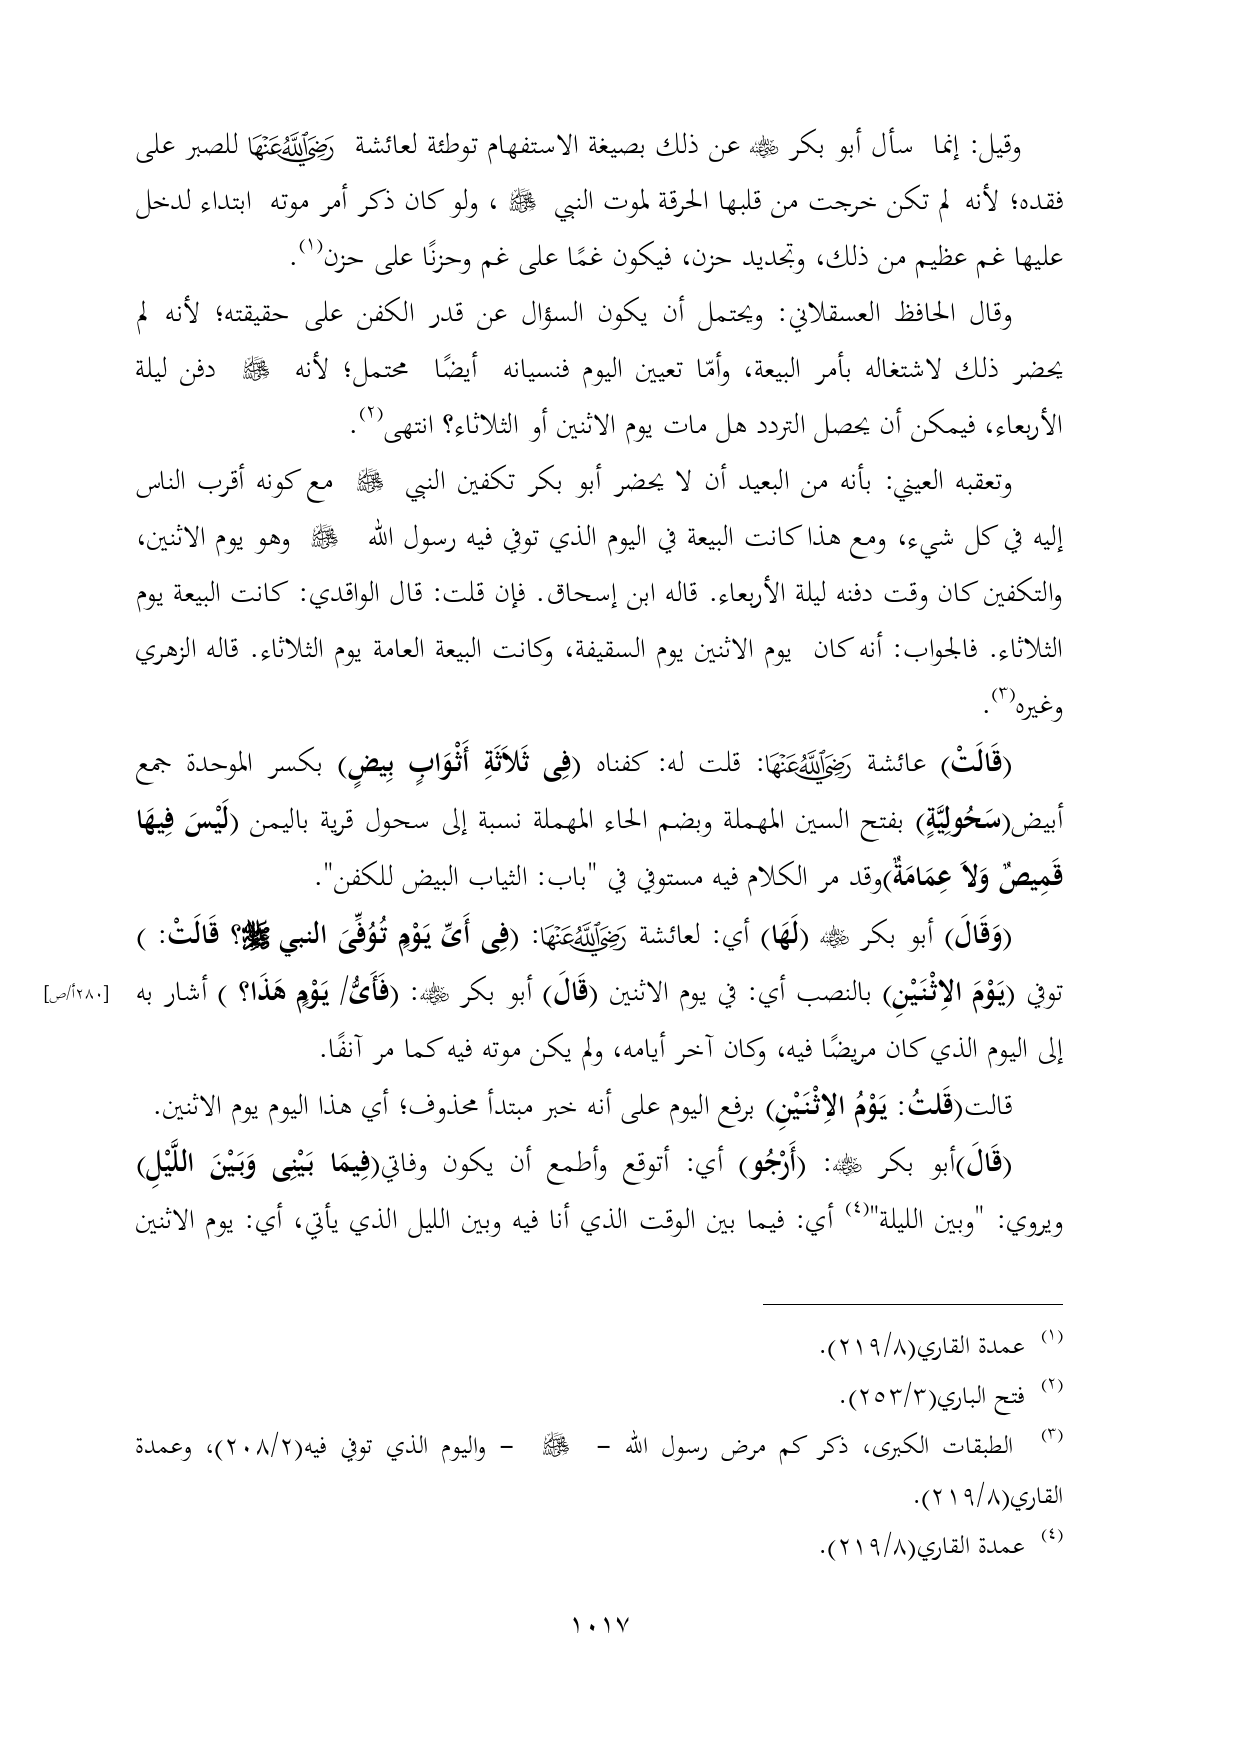 وقيل: إنما سأل أبو بكر ﵁ عن ذلك بصيغة الاستفهام توطئة لعائشة رَضِيَاللَّهُعَنْهَا للصبر على
فقده؛ لأنه لم تكن خرجت من قلبها الحرقة لموت النبي ﷺ ، ولو كان ذكر أمر موته ابتداء لدخل
عليها غم عظيم من ذلك، وتجديد حزن، فيكون غمًا على غم وحزنًا على حزن(١).
وقال الحافظ العسقلاني: ويحتمل أن يكون السؤال عن قدر الكفن على حقيقته؛ لأنه لم
يحضر ذلك لاشتغاله بأمر البيعة، وأمّا تعيين اليوم فنسيانه أيضًا محتمل؛ لأنه ﷺ دفن ليلة
الأربعاء، فيمكن أن يحصل التردد هل مات يوم الاثنين أو الثلاثاء؟ انتهى(٢).
وتعقبه العيني: بأنه من البعيد أن لا يحضر أبو بكر تكفين النبي ﷺ مع كونه أقرب الناس
إليه في كل شيء، ومع هذا كانت البيعة في اليوم الذي توفي فيه رسول الله ﷺ وهو يوم الاثنين،
والتكفين كان وقت دفنه ليلة الأربعاء. قاله ابن إسحاق. فإن قلت: قال الواقدي: كانت البيعة يوم
الثلاثاء. فالجواب: أنه كان يوم الاثنين يوم السقيفة، وكانت البيعة العامة يوم الثلاثاء. قاله الزهري
وغيره(٣).
(قَالَتْ) عائشة رَضِيَاللَّهُعَنْهَا: قلت له: كفناه (فِى ثَلاَثَةِ أَثْوَابٍ بِيضٍ) بكسر الموحدة جمع
أبيض(سَحُولِيَّةٍ) بفتح السين المهملة وبضم الحاء المهملة نسبة إلى سحول قرية باليمن (لَيْسَ فِيهَا
قَمِيصٌ وَلاَ عِمَامَةٌ)وقد مر الكلام فيه مستوفي في "باب: الثياب البيض للكفن".
(وَقَالَ) أبو بكر ﵁ (لَهَا) أي: لعائشة رَضِيَاللَّهُعَنْهَا: (فِى أَىِّ يَوْمٍ تُوُفِّىَ النبي ﷺ؟ قَالَتْ: )
توفي (يَوْمَ الاِثْنَيْنِ) بالنصب أي: في يوم الاثنين (قَالَ) أبو بكر ﵁: (فَأَىُّ/ يَوْمٍ هَذَا؟ ) أشار به [٢٨٠أ/ص]
إلى اليوم الذي كان مريضًا فيه، وكان آخر أيامه، ولم يكن موته فيه كما مر آنفًا.
قالت(قَلتُ: يَوْمُ الاِثْنَيْنِ) برفع اليوم على أنه خبر مبتدأ محذوف؛ أي هذا اليوم يوم الاثنين.
(قَالَ)أبو بكر ﵁: (أَرْجُو) أي: أتوقع وأطمع أن يكون وفاتي(فِيمَا بَيْنِى وَبَيْنَ اللَّيْلِ)
ويروي: "وبين الليلة"(٤) أي: فيما بين الوقت الذي أنا فيه وبين الليل الذي يأتي، أي: يوم الاثنين
(١) عمدة القاري(٢١٩/٨).
(٢) فتح الباري(٢٥٣/٣).
(٣) الطبقات الكبرى، ذكر كم مرض رسول الله – ﷺ – واليوم الذي توفي فيه(٢٠٨/٢)، وعمدة
القاري(٢١٩/٨).
(٤) عمدة القاري(٢١٩/٨).
١٠١٧